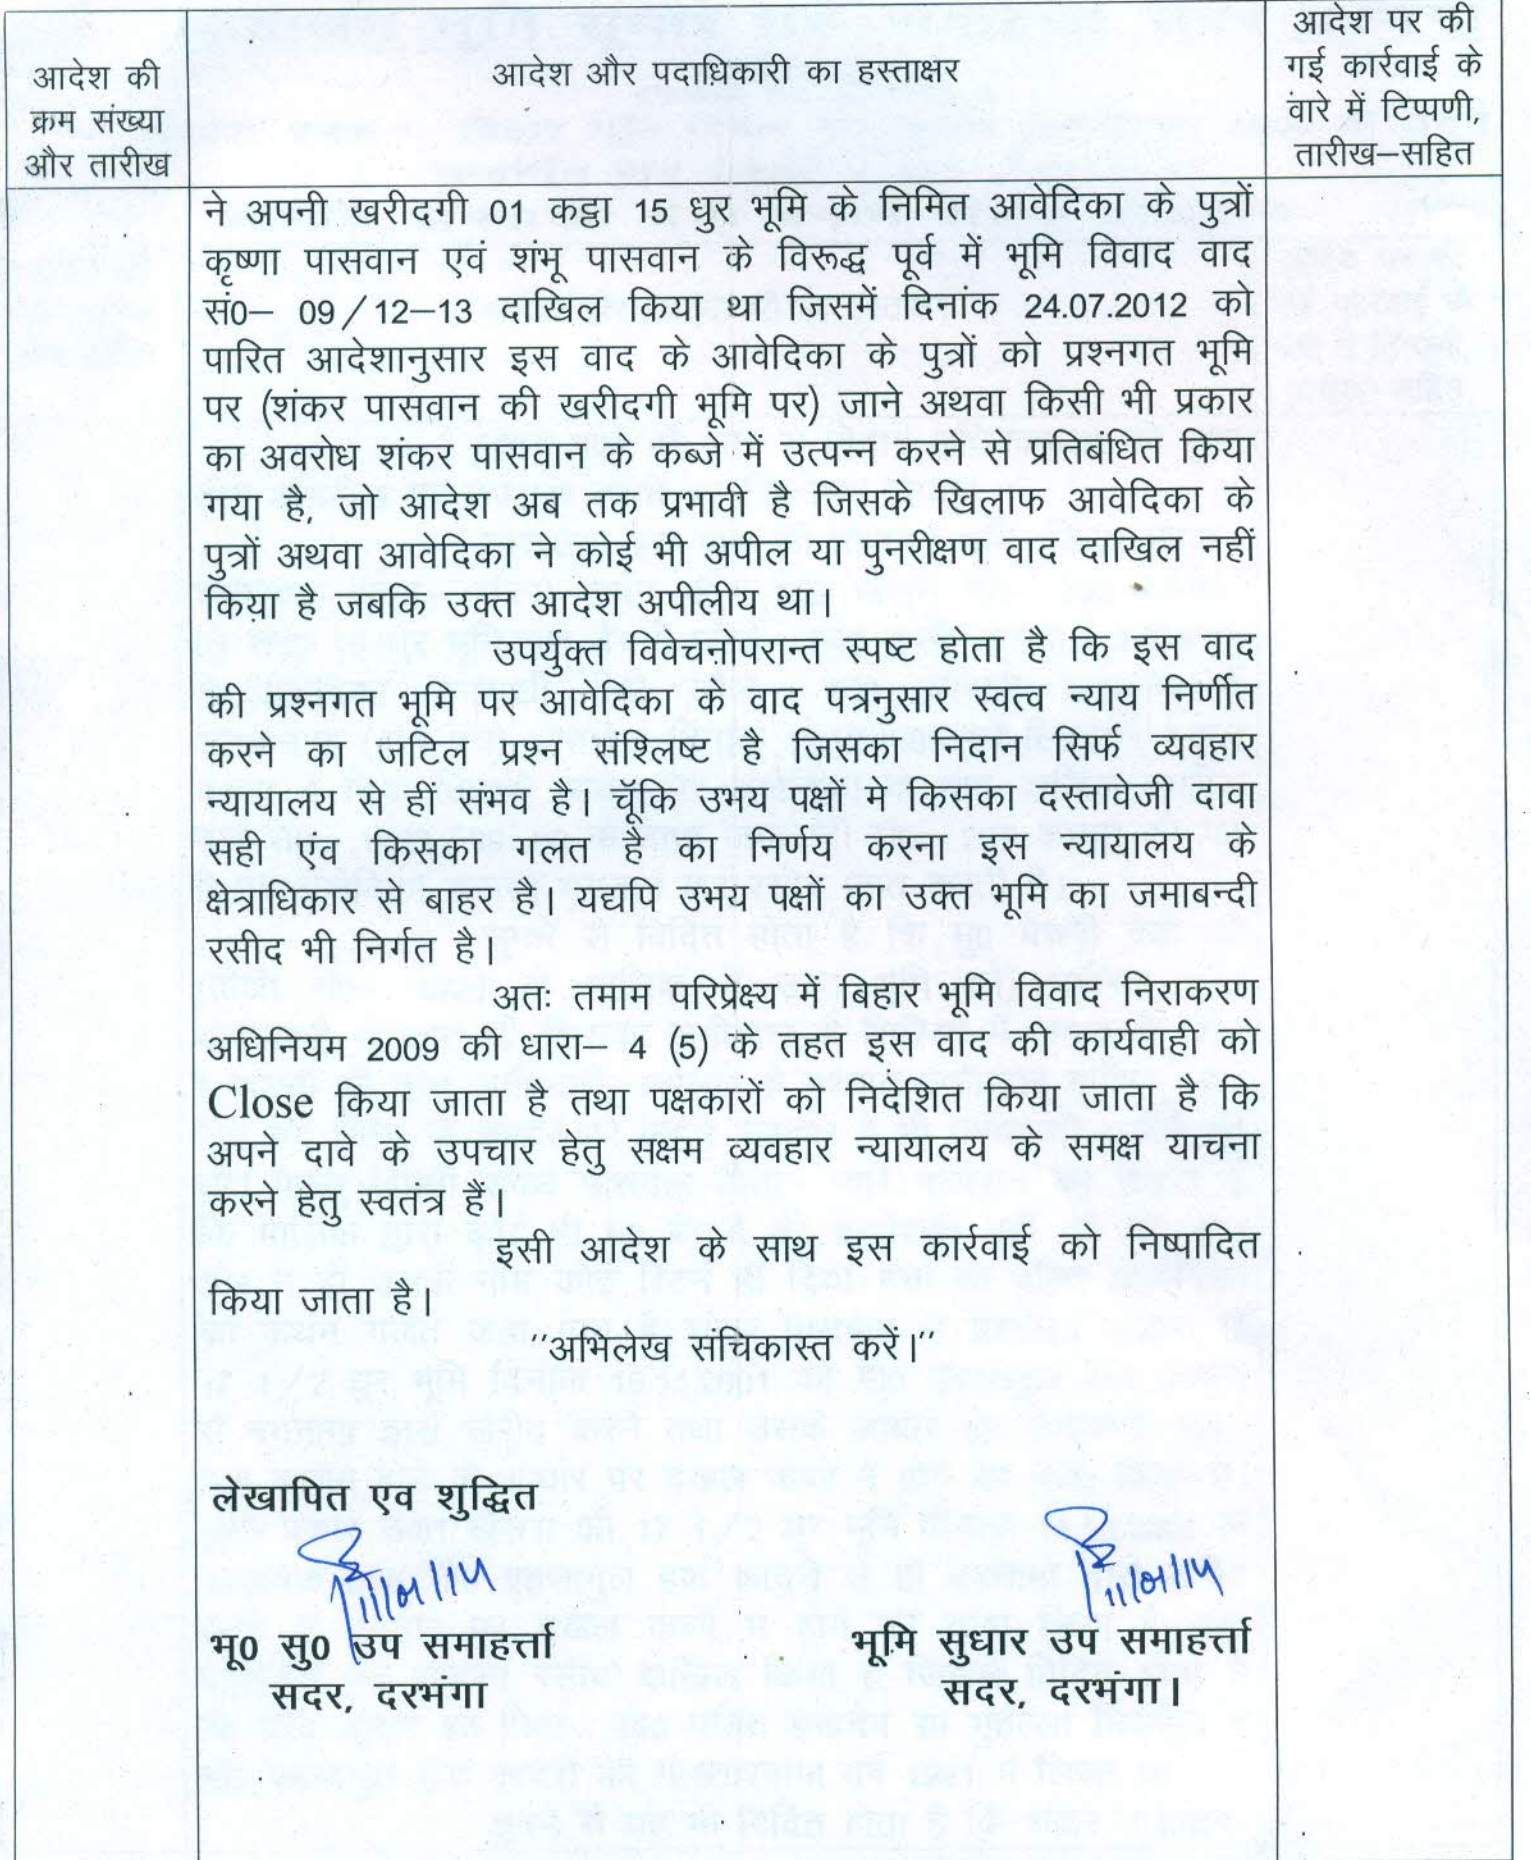 आदेश की
क्रम संख्या
और तारीख
आदेश और पदाधिकारी का हस्ताक्षर
आदेश पर की
गई कार्रवाई के
वारे में टिप्पणी,
तारीख–सहित
ने अपनी खरीदगी 01 कट्ठा 15 धुर भूमि के निमित आवेदिका के पुत्रों
कृष्णा पासवान एवं शंभू पासवान के विरूद्ध पूर्व में भूमि विवाद वाद
सं0– 09/12–13 दाखिल किया था जिसमें दिनांक 24.07.2012 को
पारित आदेशानुसार इस वाद के आवेदिका के पुत्रों को प्रश्नगत भूमि
पर (शंकर पासवान की खरीदगी भूमि पर) जाने अथवा किसी भी प्रकार
का अवरोध शंकर पासवान के कब्जे में उत्पन्न करने से प्रतिबंधित किया
गया है, जो आदेश अब तक प्रभावी है जिसके खिलाफ आवेदिका के
पुत्रों अथवा आवेदिका ने कोई भी अपील या पुनरीक्षण वाद दाखिल नहीं
किया है जबकि उक्त आदेश अपीलीय था।
उपर्युक्त विवेचनोपरान्त स्पष्ट होता है कि इस वाद
की प्रश्नगत भूमि पर आवेदिका के वाद पत्रनुसार स्वत्व न्याय निर्णीत
करने का जटिल प्रश्न संश्लिष्ट है जिसका निदान सिर्फ व्यवहार
न्यायालय से हीं संभव है। चूँकि उभय पक्षों में किसका दस्तावेजी दावा
सही एंव किसका गलत है का निर्णय करना इस न्यायालय के
क्षेत्राधिकार से बाहर है। यद्यपि उभय पक्षों का उक्त भूमि का जमाबन्दी
रसीद भी निर्गत है।
अतः तमाम परिप्रेक्ष्य में बिहार भूमि विवाद निराकरण
अधिनियम 2009 की धारा– 4 (5) के तहत इस वाद की कार्यवाही को
Close किया जाता है तथा पक्षकारों को निदेशित किया जाता है कि
अपने दावे के उपचार हेतु सक्षम व्यवहार न्यायालय के समक्ष याचना
करने हेतु स्वतंत्र है।
इसी आदेश के साथ इस कार्रवाई को निष्पादित
किया जाता है।
''अभिलेख संचिकास्त करें।''
लेखापित एव शुद्धित
11/01/14
11/01/14
भू0 सु0 उप समाहर्त्ता
भूमि सुधार उप समाहर्त्ता
सदर, दरभंगा
सदर, दरभंगा।